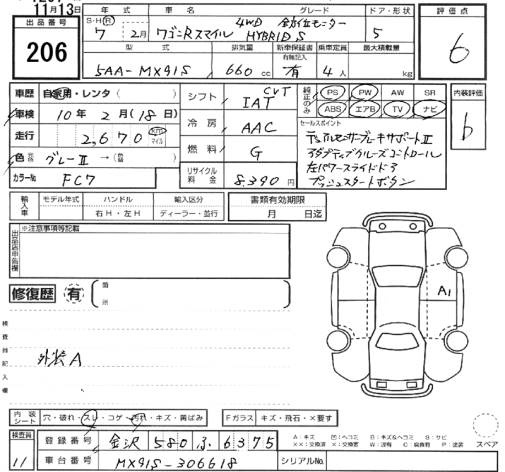 11月13日
出品番号
206
S・H・R 年式 車名 グレード ドア・形状 評価点
7 2月 ワゴンRスマイル 4WD 全方位モニター HYBRID S 5 6
型式 排気量 新車保証書 乗車定員 最大積載量
有無記入
5AA-MX91S 660cc 有 4人 kg
車歴 自家用・レンタ( )
車検 10年2月(18日)
走行 2,670 km マイル
色 グレーII→( )
カラーNo FC7
シフト CVT IAT
冷房 AAC
燃料 G
リサイクル料金 8390円
純正のみ PS PW AW SR
ABS エアB TV ナビ
内装評価
b
セールスポイント
デュアルセンサーブレーキサポートII
アダプティブクルーズコントロール
左パワースライドドア
プッシュスタートボタン
輸入車 モデル年式 ハンドル 輸入区分 書類有効期限
右H・左H ディーラー・並行 月 日迄
出品店申告欄 ※注意事項等記載
修復歴 有 箇所
検査員記入欄
外装A
A1
内装シート 穴・破れ・スレ・コゲ・汚れ・キズ・黄ばみ Fガラス キズ・飛石・×要す
検査員 11
登録番号 金沢 580 ふ 6375
車台番号 MX91S-306618 シリアルNo.
A:キズ U:ヘコミ B:キズ&ヘコミ S:サビ
××:交換済 ×:交換要 W:波有 C:腐食有 P:塗装
スペア